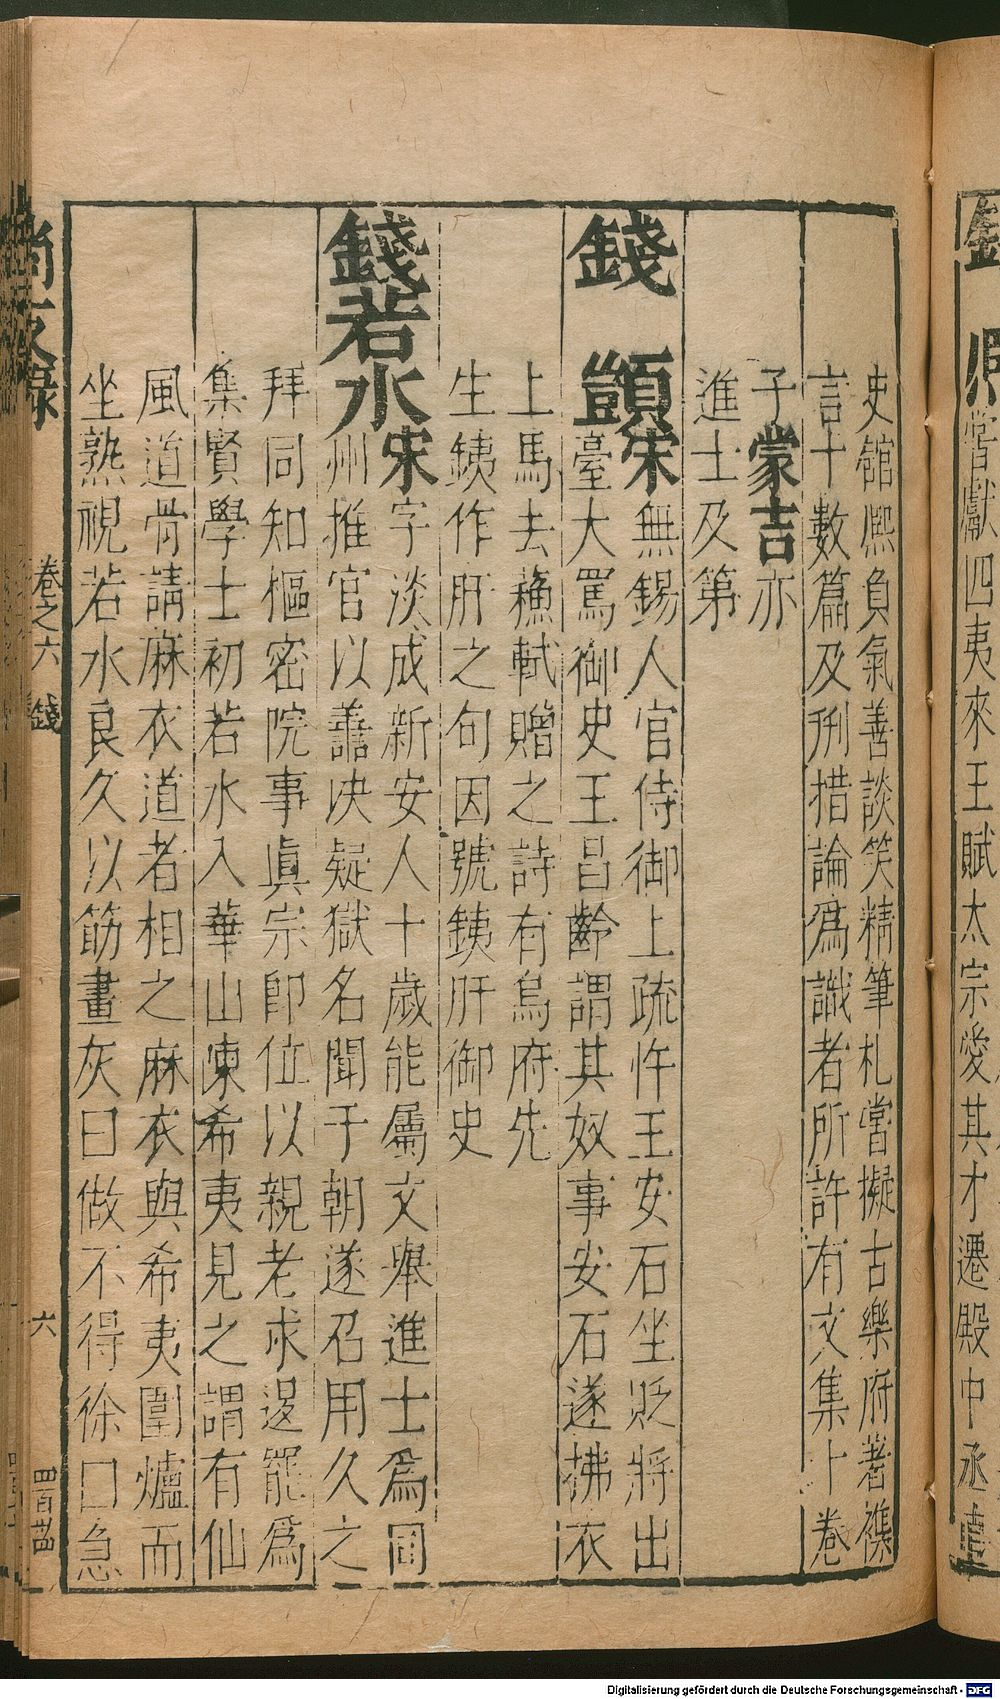 嘗獻四夷來王賦太宗愛其才遷殿中丞
史舘熈負氣善談笑精筆札嘗擬古樂府著襍
言十數篇及刑措論爲識者所許有文集十卷
子蒙吉亦
進士及第
錢顗宋無錫人官侍御上疏忤王安石坐貶將出
臺大罵御史王昌齡謂其奴事安石遂拂衣
上馬去蘓軾贈之詩有烏府先
生鉄作肝之句因號鉄肝御史
錢若水宋字淡成新安人十歲能屬文舉進士爲同
州推官以善决疑獄名聞于朝遂召用久之
拜同知樞密院事眞宗即位以親老求退罷爲
集賢學士初若水入華山陳希夷見之謂有仙
風道骨請麻衣道者相之麻衣與希夷圍爐而
坐熟視若水良久以筯畫灰曰做不得徐曰急
尚友錄
卷之六
錢
六
四百
Digitalisierung gefördert durch die Deutsche Forschungsgemeinschaft - DFG